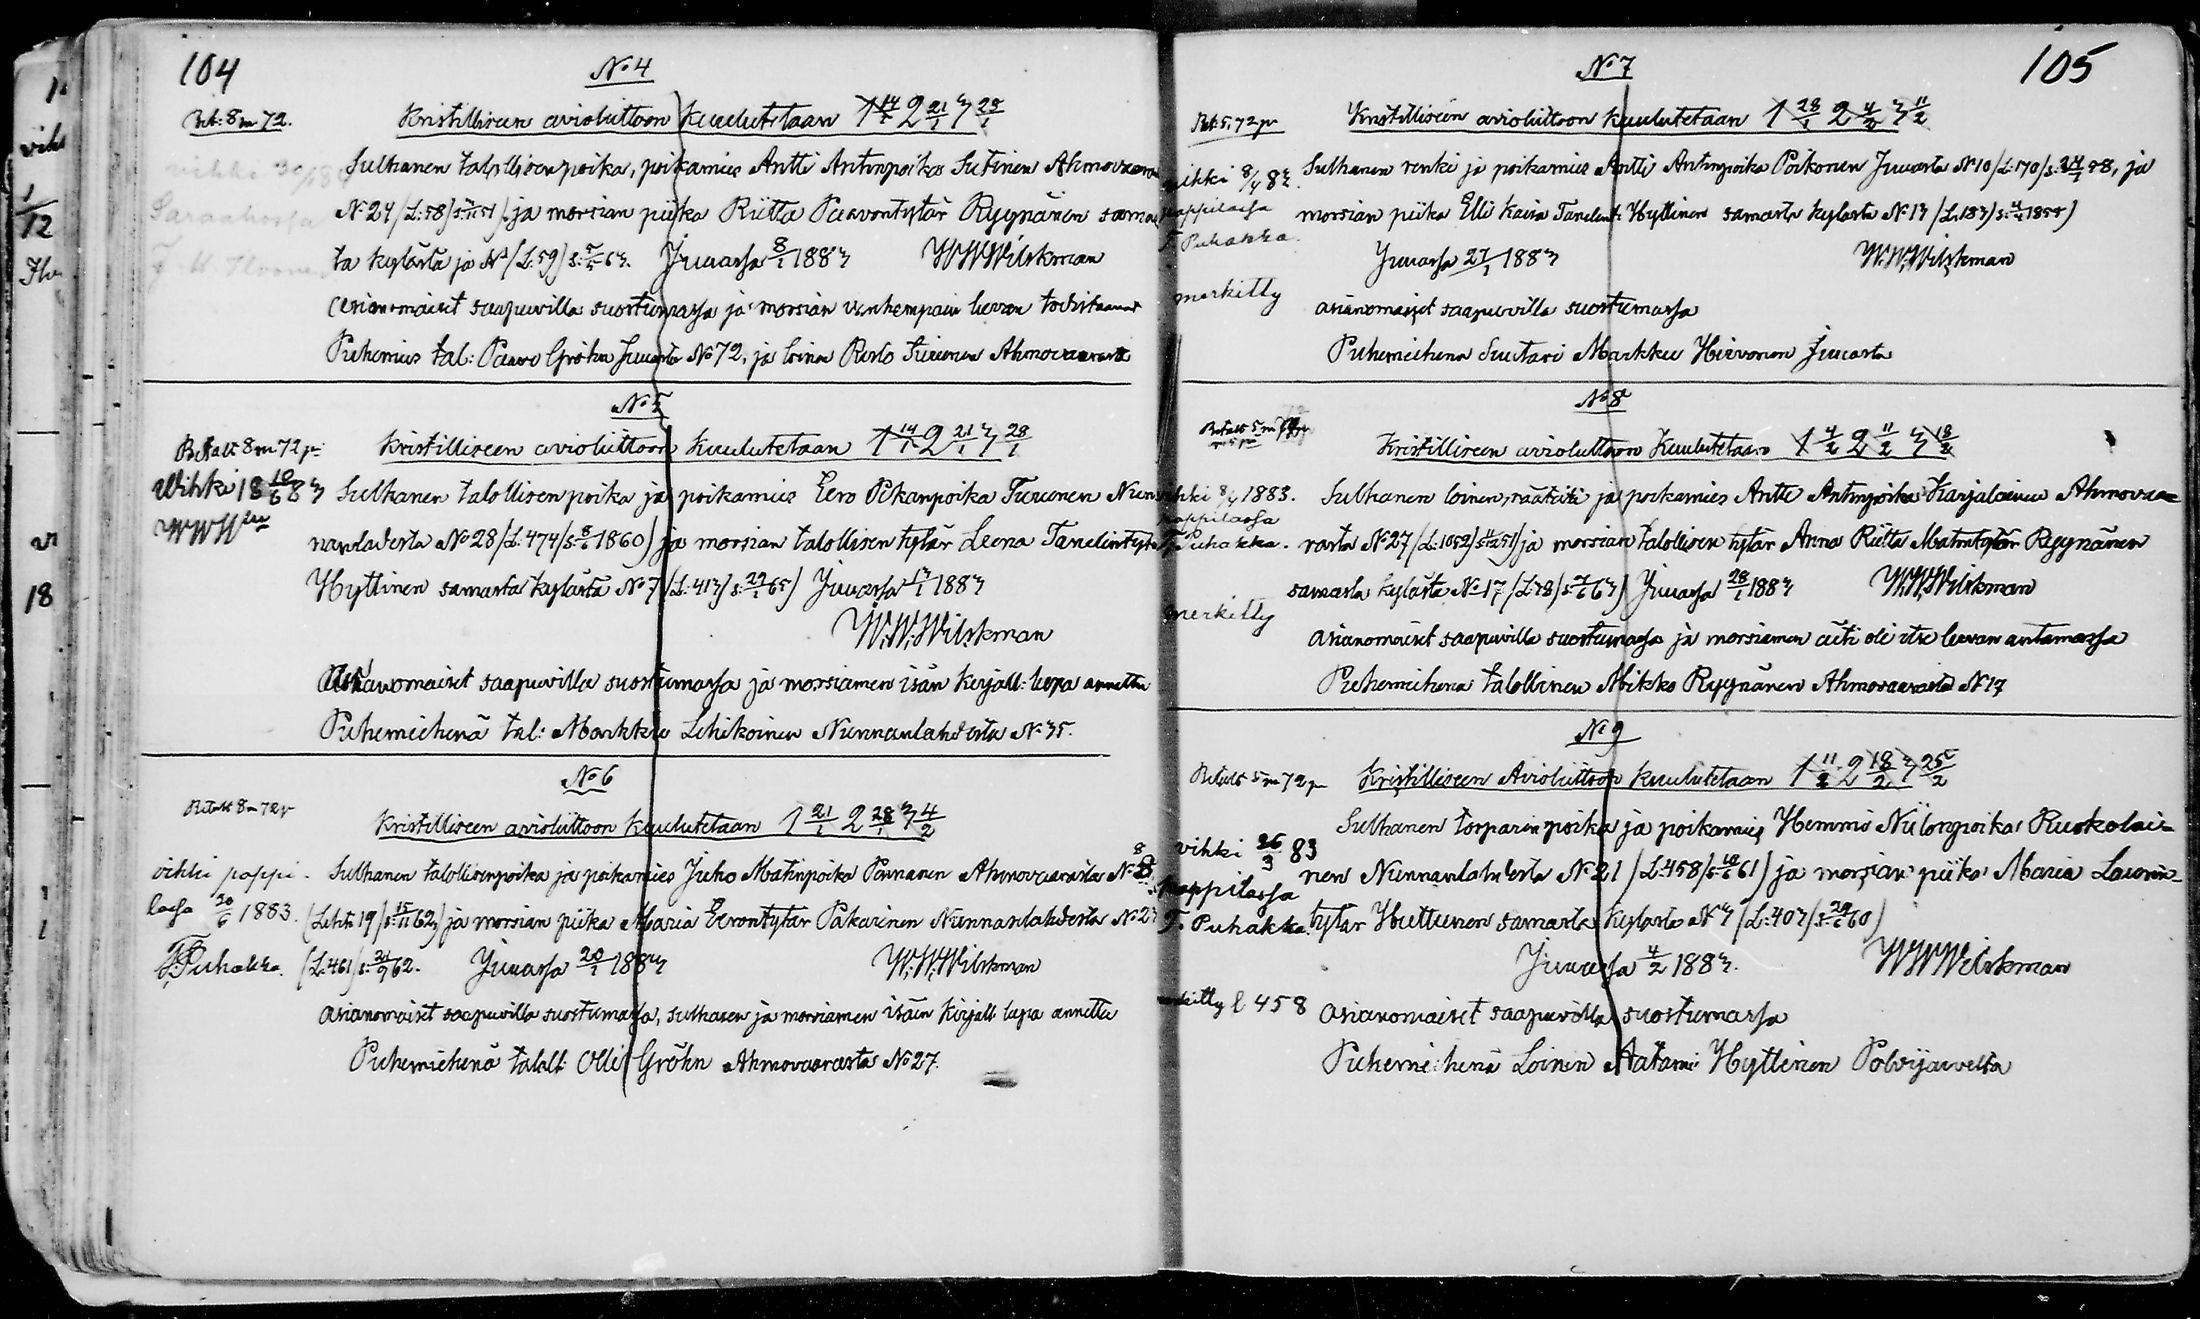 104
No 4
Bet: 8 m 72.
Kristilliseen avioliittoon kuulutetaan 1 14/1 2 21/1 3 28/1
Sulhanen talollisen poika, poikamies Antti Antinpoika Sutinen Ahmovaara
No 24 /L: 58/ ja morsian piika Riitta Paavontytär Ryynänen samas
ta kylästä ja No (L: 59) Juuassa 8/1 1883 W.W. Wilskman
asianomaiset saapuvilla suostumassa ja morsian vanhempain luvan todistaman
Puhemies tal: Paavo Gröhn Juuasta No 72, ja loinen Risto Turunen Ahmovaarasta
vihki 30/
Saraahossa
No 5
Betalt 8 m 72 p
Kristilliseen avioliittoon kuulutetaan 1 14/1 2 21/1 3 28/1
Wihki 18 10/6 83
WWWm
Sulhanen talollisen poika ja poikamies Eero Pekanpoika Turunen Nun
nanlahdesta No 28 /L: 474/ s: 8/6 1860) ja morsian talollisen tytär Leena Tanelintytär
Hyttinen samasta kylästä No 7 (L: 413/ s: 29/1 65) Juuassa 13/1 1883
W.W. Wilskman
Asianomaiset saapuvilla suostumassa ja morsiamen isän kirjall: lupa annettu
Puhemiehenä tal: Markku Lehikoinen Nunnanlahdesta No 35.
No 6
Betalt 8 m 72 p
Kristilliseen avioliittoon kuulutetaan 1 21/1 2 28/1 3 4/2
vihki pappi-
lassa 20/6 1883.
F. Puhakka.
Sulhanen talollisenpoika ja poikamies Juho Matinpoika Pannanen Ahmovaarasta No 8
(Lehti 19/ s: 15/11 62) ja morsian piika Maria Eerontytär Pakarinen Nunnanlahdesta No 27
(L: 461/ s: 62. Juuassa 20/1 1883 W.W. Wilskman
asianomaiset saapuvilla suostumassa, sulhasen ja morsiamen isäin kirjall. lupa annettu
Puhemiehenä talall: Olli Gröhn Ahmovaarasta No 27.
105
No 7
Bet: 5, 72 p
Kristilliseen avioliittoon kuulutetaan 1 28/1 2 4/2 3 11/2
vihki 8/4 83.
pappilassa
F. Puhakka.
merkitty
Sulhanen renki ja poikamies Antti Antinpoika Poikonen Juuasta No 10 /L: 170/ ja
morsian piika Elli Kaisa Tanelint: Hyttinen samasta kylästä No 13 /L: 183/
Juuassa 27/1 1883 W.W. Wilskman
asianomaiset saapuvilla suostumassa
Puhemiehenä Suutari Markku Hirvonen Juuasta
No 8
Betalt 5 m
Kristilliseen avioliittoon Kuulutetaan 1 4/2 2 11/2 3 18/2
vihki 8/4 1883.
pappilassa
F. Puhakka.
merkitty
Sulhanen loinen, räätäli ja poikamies Antti Antinpoika Karjalainen Ahmovaa-
rasta No 27 /L: 1052/ ja morsian talollisen tytär Anna Riitta Matintytär Ryynänen
samasta kylästä No 17 /L: 78/ Juuassa 28/1 1883 W.W. Wilskman
Asianomaiset saapuvilla suostumassa ja morsiamen äiti oli itse luvan antamassa
Puhemiehenä talollinen Mikko Ryynänen Ahmovaarasta No 17
No 9
Betalt 5 m 72 p
Kristilliseen Avioliittoon kuulutetaan 1 11/2 2 18/2 3 25/2
vihki 26/3 83
pappilassa
F. Puhakka.
merkitty l 458
Sulhanen torparin poika ja poikamies Hemmi Niilonpoika Ruokolai-
nen Nunnanlahdesta No 21 /L: 458/ s: 61) ja morsian piika Maria Laurin-
tytär Huttunen samasta kylästä No 3 /L: 403/ s: 29/6 60)
Juuassa 4/2 1883. W.W. Wilskman
asianomaiset saapuvilla suostumassa
Puhemiehenä Loinen Aatami Hyttinen Polvijärveltä